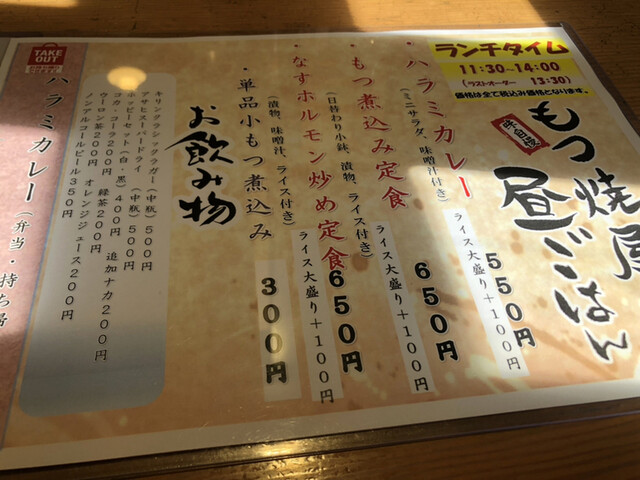 ランチタイム
11:30~14:00
(ラストオーダー 13:30)
価格は全て税込み価格となります。
もつ焼屋
昼ごはん
・ハラミカレー
(ミニサラダ、味噌汁付き)
５５０円
ライス大盛り+１００円
・もつ煮込み定食
(日替わり小鉢、漬物、ライス付き)
６５０円
ライス大盛り+１００円
・なすホルモン炒め定食
(漬物、味噌汁、ライス付き)
６５０円
ライス大盛り+１００円
・単品小もつ煮込み
３００円
お飲み物
キリンクラシックラガー(中瓶)５００円
アサヒスーパードライ(中瓶)５００円
ホッピーセット(白・黒)４００円 追加ナカ２００円
コカ・コーラ２００円 緑茶２００円
ウーロン茶２００円 オレンジジュース２００円
ノンアルコールビール３５０円
TAKE OUT
ハラミカレー(弁当・持ち帰